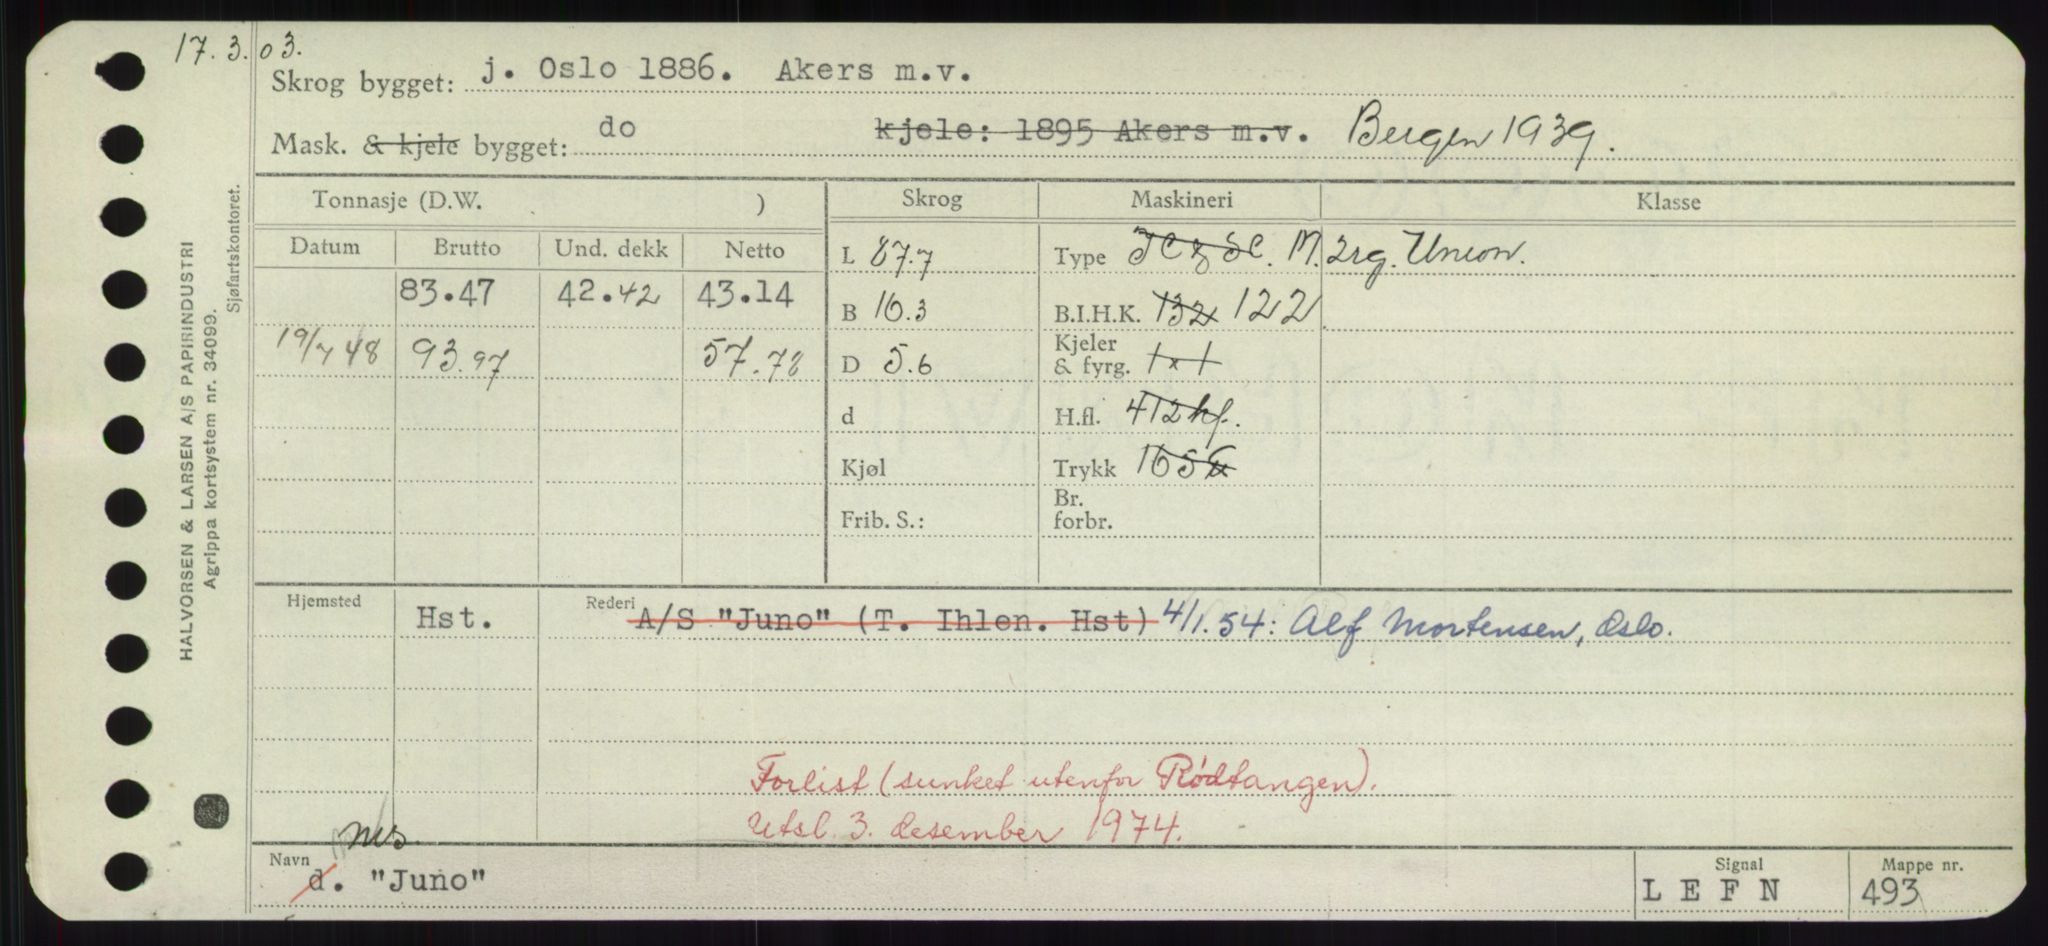 17.3.03.
Skrog bygget: j. Oslo 1886. Akers m.v.
Mask. & kjele bygget: do kjele: 1895 Akers m.v. Bergen 1939.
Tonnasje (D.W. ) Skrog Maskineri Klasse
Datum Brutto Und. dekk Netto
L 87.7 Type M. 2rg. Union.
83.47 42.42 43.14
B 16.3 B.I.H.K. 132 122
19/7 48 93.97 57.78
D 5.6 Kjeler & fyrg. 1 x 1
d H.fl. 412 hf.
Kjøl Trykk 165
Frib. S.: Br. forbr.
Hjemsted Hst. Rederi A/S "Juno" (T. Ihlen. Hst) 4/1.54: Alf Mortensen, Oslo.
Forlist (sunket utenfor Rødtangen).
Utsl. 3. desember 1974.
ms.
Navn d. "Juno" Signal LEFN Mappe nr. 493
HALVORSEN & LARSEN A/S PAPIRINDUSTRI
Agrippa kortsystem nr. 34099.
Sjøfartskontoret.